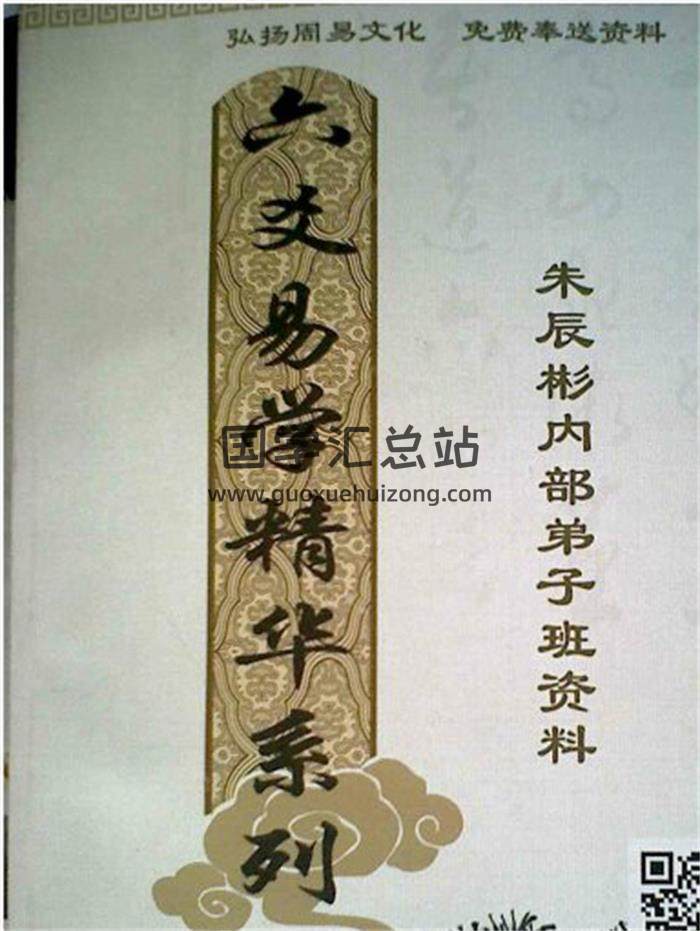 弘扬周易文化 免费奉送资料
六爻易学精华系列
朱辰彬内部弟子班资料
国学汇总站
www.guoxuehuizong.com